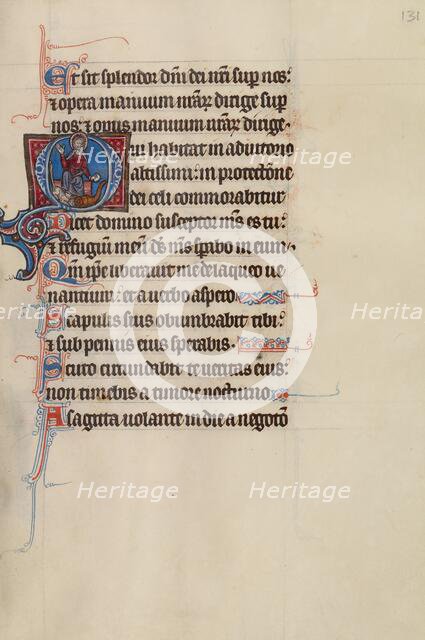 131
Et sit splendor dñi dei nr̃i suꝑ nos:
⁊ opera manuum nr̃aꝝ dirige suꝑ
nos: ⁊ opus manuum nr̃aꝝ dirige.
Qui habitat in adiutorio
altissimi: in protectõne
dei celi commorabitur
Dicet domino susceptor m̃s es tu:
⁊ refugiũ meũ ds̃ m̃s sp̃abo in eum.
Qm̃ ip̃e liberauit me de laqueo ue
nantium: et a uerbo aspero.
Scapulis suis obumbrabit tibi:
⁊ sub pennis eius sperabis.
Scuto circundabit te ueritas eius:
non timebis a timore nocturno.
A sagitta uolante in die a negotõ
Heritage Heritage Heritage
Heritage Heritage
Heritage Heritage
Heritage Heritage Heritage